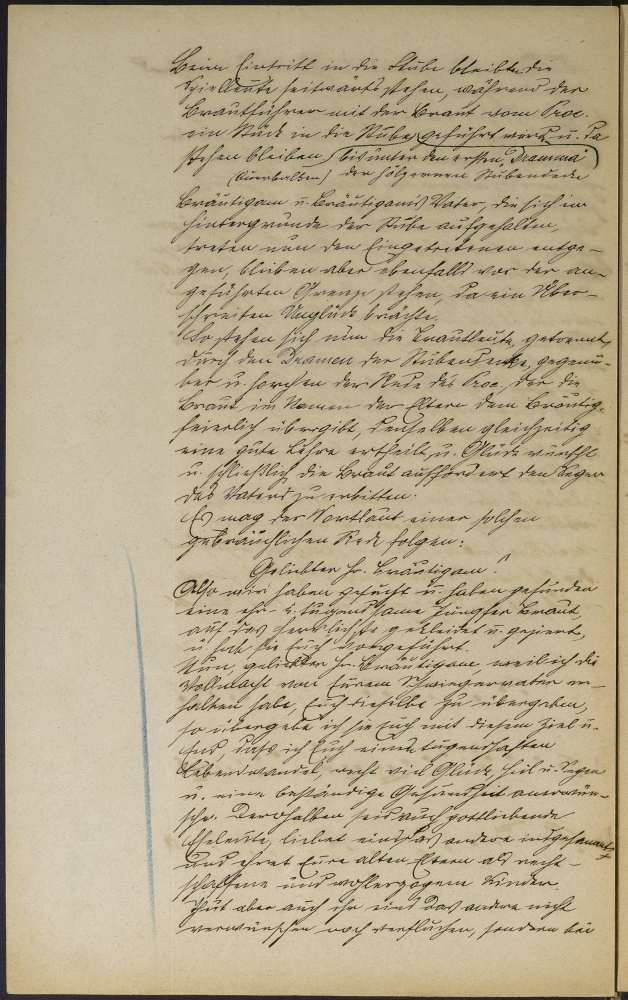 Beim Eintritt in die Stube bleiben die
Spielleute seitwärts stehen, während der
Brautführer mit der Braut vom Proc.
ein Stück in die Stube geführt wird u. da
stehen bleiben (bis unter den ersten "Dramma"
(Querbalken) der hölzernen Stubendecke
Bräutigam u. Bräutigams Vater, die sich im
Hintergrunde der Stube aufgehalten,
treten nun den Eingetretenen entge-
gen, bleiben aber ebenfalls vor der an-
geführten Grenze stehen, da ein Über-
schreiten Unglück brächte.
So stehen sich nun die Brautleute, getrennt
durch den Dramen der Stubendecke, gegenü-
ber u. horchen der Rede des Proc., der die
Braut im Namen der Eltern dem Bräutig.
feierlich übergibt, denselben gleichzeitig
eine gute Lehre ertheilt, u. Glück wünscht
u. schließlich die Braut auffordert den Segen
des Vaters zu erbitten.
Es mag der Wortlaut einer solchen
gebräuchlichen Rede folgen:
Geliebter Hr. Bräutigam!
Also wir haben gesucht u. haben gefunden
eine ehr- u. tugendsame Jungfer Braut,
auf das herrlichste gekleidet u. geziert,
u. hab sie Euch vorgeführt.
Nun, geliebter Hr. Bräutigam weil ich die
Vollmacht von Eurem Schwiegervater er-
halten habe, Euch dieselbe zu übergeben,
so übergebe ich sie Euch mit diesem Ziel u.
End, dass ich Euch einen tugendhaften
Lebenswandel, recht viel Glück, Heil u. Segen
u. eine beständige Gesundheit anerwün-
sche. Derohalben seid auch gottliebende
Eheleute, liebet eins das andere insgesamt
und ehret Eure alten Eltern als recht-
schaffene und wohlerzogene Kinder.
Thut aber auch ihr eins das andere nicht
verwünschen noch verfluchen, sondern bei